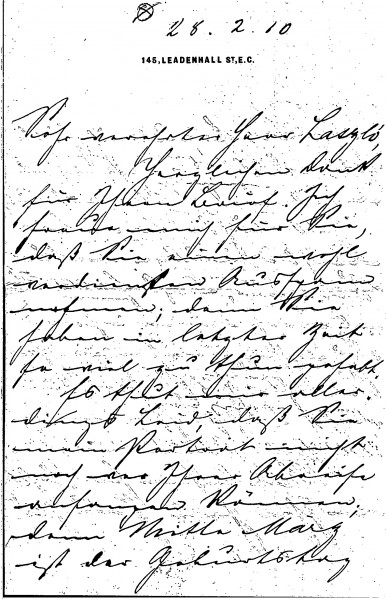 28. 2. 10
145, LEADENHALL ST, E.C.
Sehr verehrter Herr László,
Herzlichen Dank
für Ihren Brief. Ich
freue mich für Sie,
daß Sie einen wohl
verdienten Ausspann
nehmen, denn Sie
haben in letzter Zeit
so viel zu thun gehabt.
Es thut mir aller-
dings Leid, daß Sie
mein Portrait nicht
noch vor Ihrer Abreise
anfangen können,
denn Mitte März
ist der Geburtstag